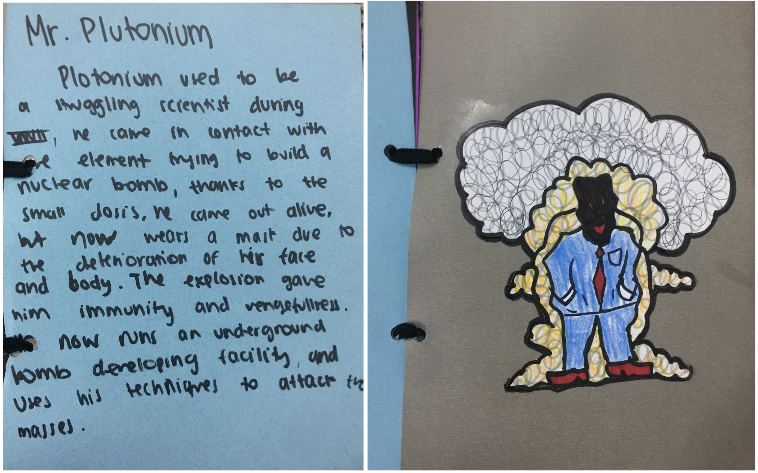 Mr. Plutonium
Plotonium used to be
a struggling scientist during
, he came in contact with
element trying to build a
nuclear bomb, thanks to the
small dosis, he came out alive,
but now wears a mast due to
the deterioration of his face
and body. The explosion gave
him immunity and vengefullness.
now runs an underground
bomb developing facility, and
uses his techniques to attack the
masses.